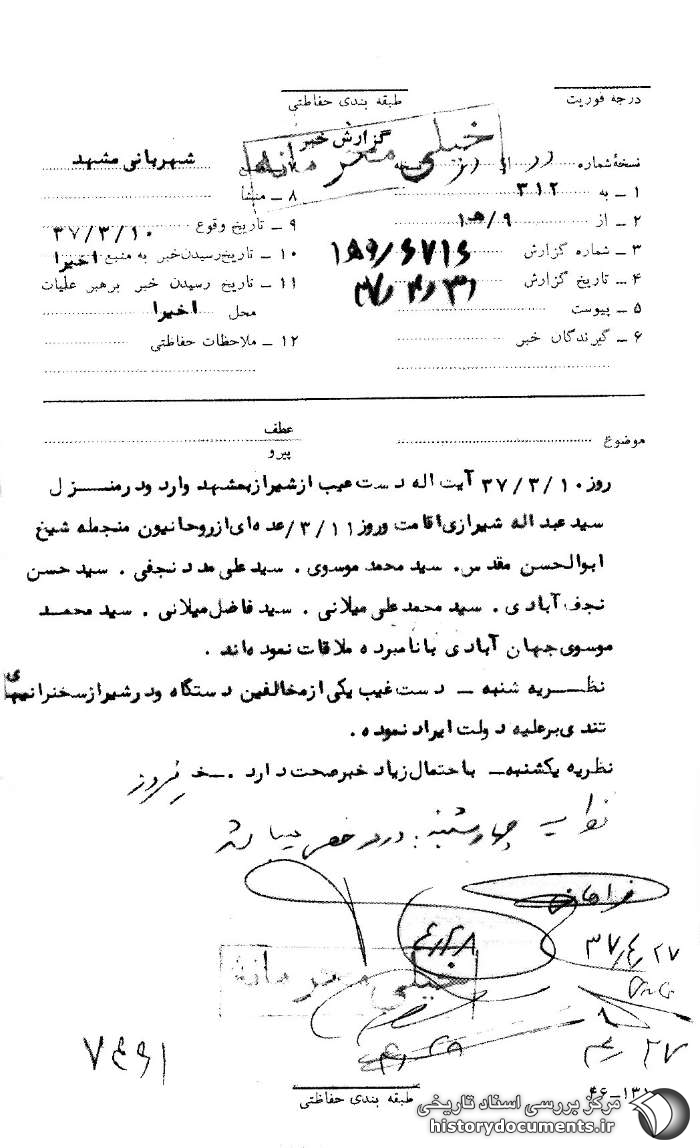 درجه فوریت
طبقه بندی حفاظتی
خیلی محرمانه
گزارش خبر
نسخهٔ شماره
۱ ـ به ۳۱۲
۲ ـ از ۹/ه‍ ۱
۳ ـ شماره گزارش
۴ ـ تاریخ گزارش
۵ ـ پیوست
۶ ـ گیرندگان خبر
شهربانی مشهد
۸ ـ منشأ
۹ ـ تاریخ وقوع ۳۷/۳/۱۰
۱۰ ـ تاریخ رسیدن خبر به منبع اخیرا
۱۱ ـ تاریخ رسیدن خبر برهبر عملیات
محل اخیرا
۱۲ ـ ملاحظات حفاظتی
موضوع
عطف
پیرو
روز ۳۷/۳/۱۰ آیت اله دست عیب ازشیراز بمشهد وارد ودرمنزل
سید عبد اله شیرازی اقامت وروز ۳/۱۱/ عده ای از روحانیون منجمله شیخ
ابوالحسن مقدس. سید محمد موسوی . سید علی مدد نجفی . سید حسن
نجف آبادی . سید محمد علی میلانی . سید فاضل میلانی . سید محمد
موسوی جهان آبادی با نامبرده ملاقات نموده اند .
نظریه شنبه ـ دست غیب یکی از مخالفین دستگاه ودرشیراز سخنرانیهای
تندی برعلیه دولت ایراد نموده .
نظریه یکشنبه ـ با احتمال زیاد خبر صحت دارد .
نظریه چهارشنبه:
۳۷/۴/۲۷
خیلی محرمانه
طبقه بندی حفاظتی
مرکز بررسی اسناد تاریخی
historydocuments.ir